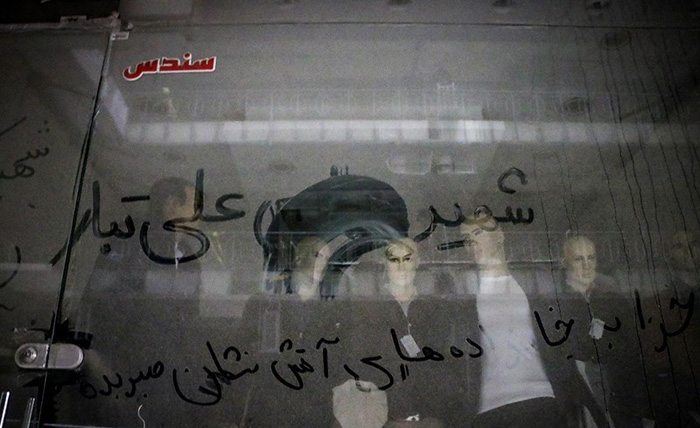 سندس
شهید علی تبار
خدا به خانواده های آتش نشان صبر بده